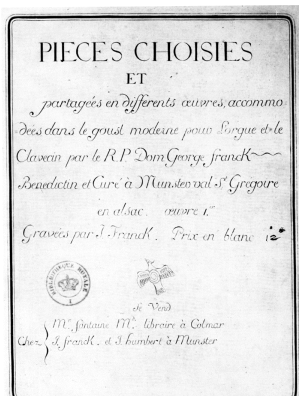 PIECES CHOISIES
ET
partagées en différents œuvres, accommo
dées dans le goust moderne pour l'orgue et le
Clavecin par le R.P. Dom George franck
Benedictin et Curé à Munsterval St Gregoire
en alsac. œuvre 1.er
Gravées par J. Franck. Prix en blanc
Se Vend
Mr. fontaine Md. libraire à Colmar
Chez J. franck. et J. hombert à Munster